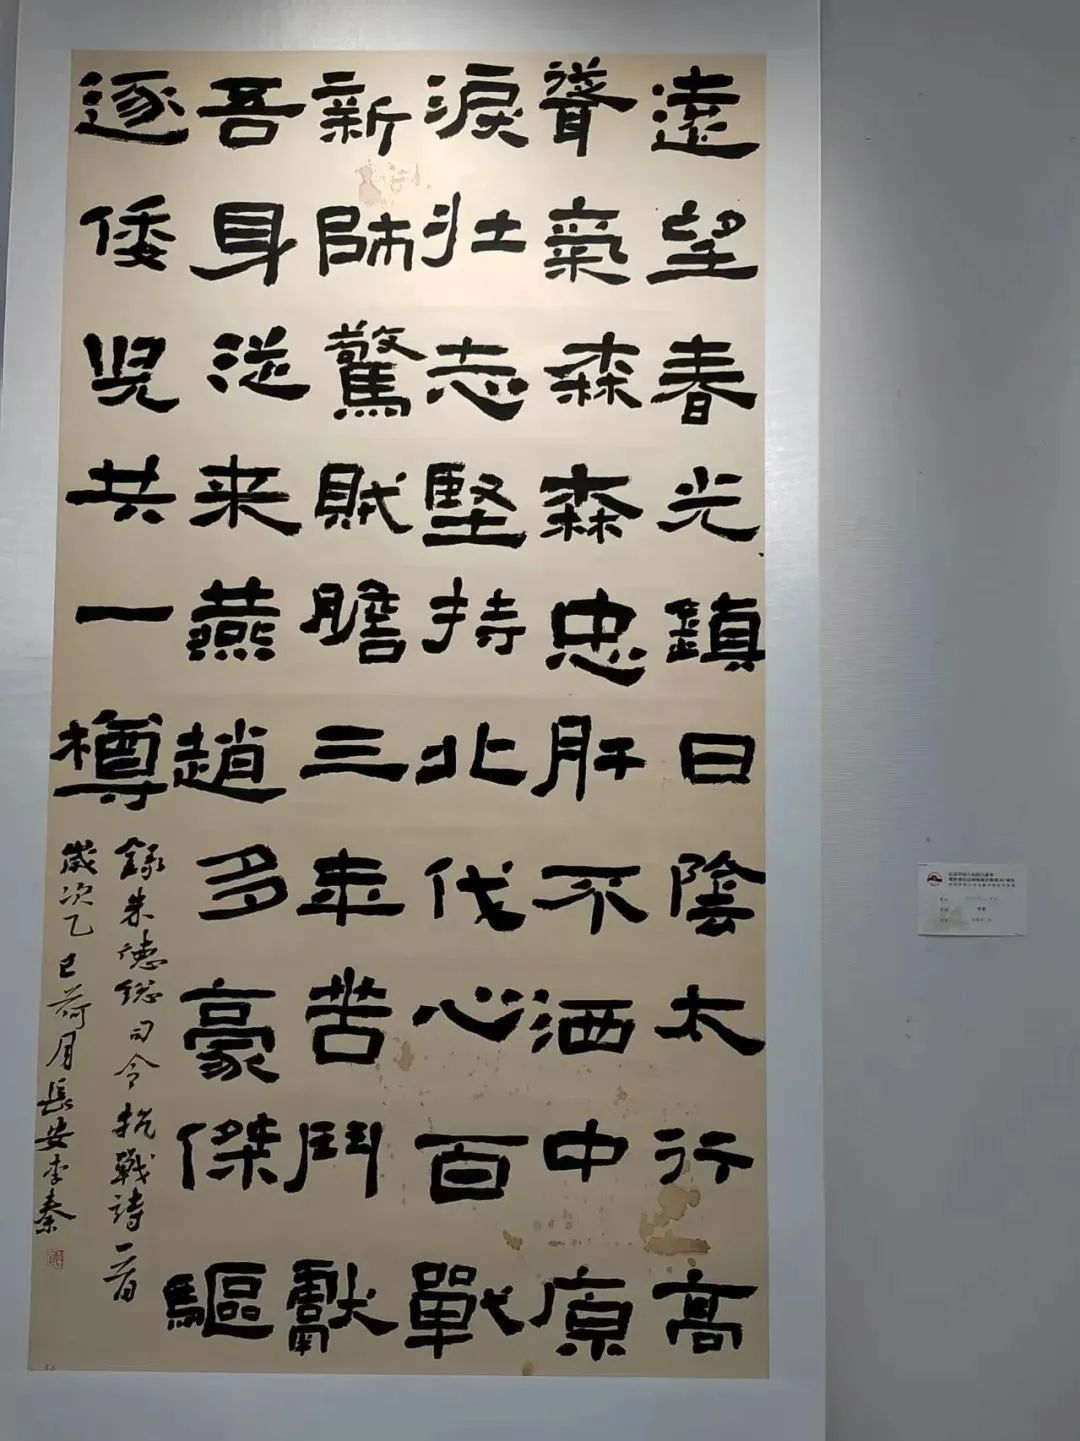 遠望春光鎮日陰太行高
聳氣森森忠肝不洒中原
淚壯志堅持北伐心百戰
新師驚賊膽三年苦鬥獻
吾身從来燕趙多豪傑驅
逐倭兒共一樽
錄朱德總司令抗戰詩一首
歲次乙巳荷月長安李秦